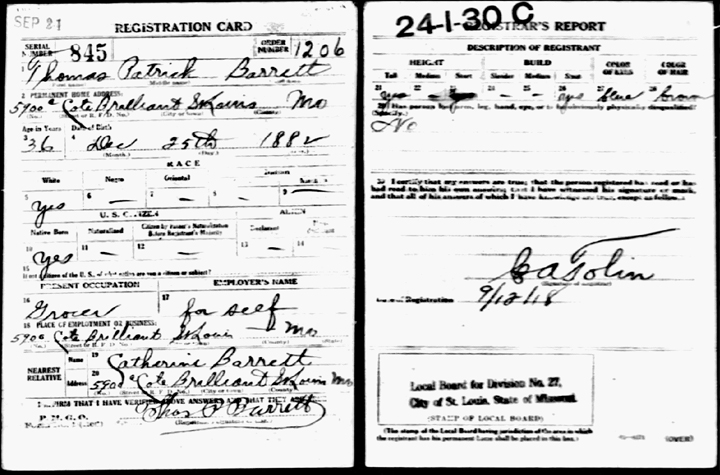 SEP 21
REGISTRATION CARD
SERIAL NUMBER 845 ORDER NUMBER 1206
Thomas Patrick Barrett
2 PERMANENT HOME ADDRESS:
5900a Cote Brilliant St Louis Mo
Age in Years Date of Birth
36 Dec 25th 1882
(Month.) (Day.)
RACE
White Negro Oriental
5 6 7 8 9
yes — — —
U. S. CITIZEN ALIEN
Native Born Naturalized Citizen by Father's Naturalization Before Registrant's Majority Declarant
10 11 12 13 14
yes — — — —
15
PRESENT OCCUPATION EMPLOYER'S NAME
16 Grocer 17 for self
18 PLACE OF EMPLOYMENT OR BUSINESS:
5900 Cote Brilliant St Louis Mo
NEAREST RELATIVE
Name 19 Catherine Barrett
Address 20 5900a Cote Brilliant St Louis Mo
I AFFIRM THAT I HAVE VERIFIED ABOVE ANSWERS AND THAT THEY ARE TRUE
P. M. G. O.
Thos P Barrett
24-1-30 C
REGISTRAR'S REPORT
DESCRIPTION OF REGISTRANT
HEIGHT BUILD COLOR OF EYES COLOR OF HAIR
Tall Medium Short Slender Medium Stout
21 22 23 24 25 26 27 28
yes yes blue brown
29 Has person lost arm, leg, hand, eye, or is he obviously physically disqualified?
(Specify.)
No
30 I certify that my answers are true; that the person registered has read or has
had read to him his own answers; that I have witnessed his signature or mark,
and that all of his answers of which I have knowledge are true, except as follows:
C A Tolin
Date of Registration 9/12/18
Local Board for Division No. 27,
City of St. Louis, State of Missouri.
(STAMP OF LOCAL BOARD)
(The stamp of the Local Board having jurisdiction of the area in which
the registrant has his permanent home shall be placed in this box.)
(OVER)